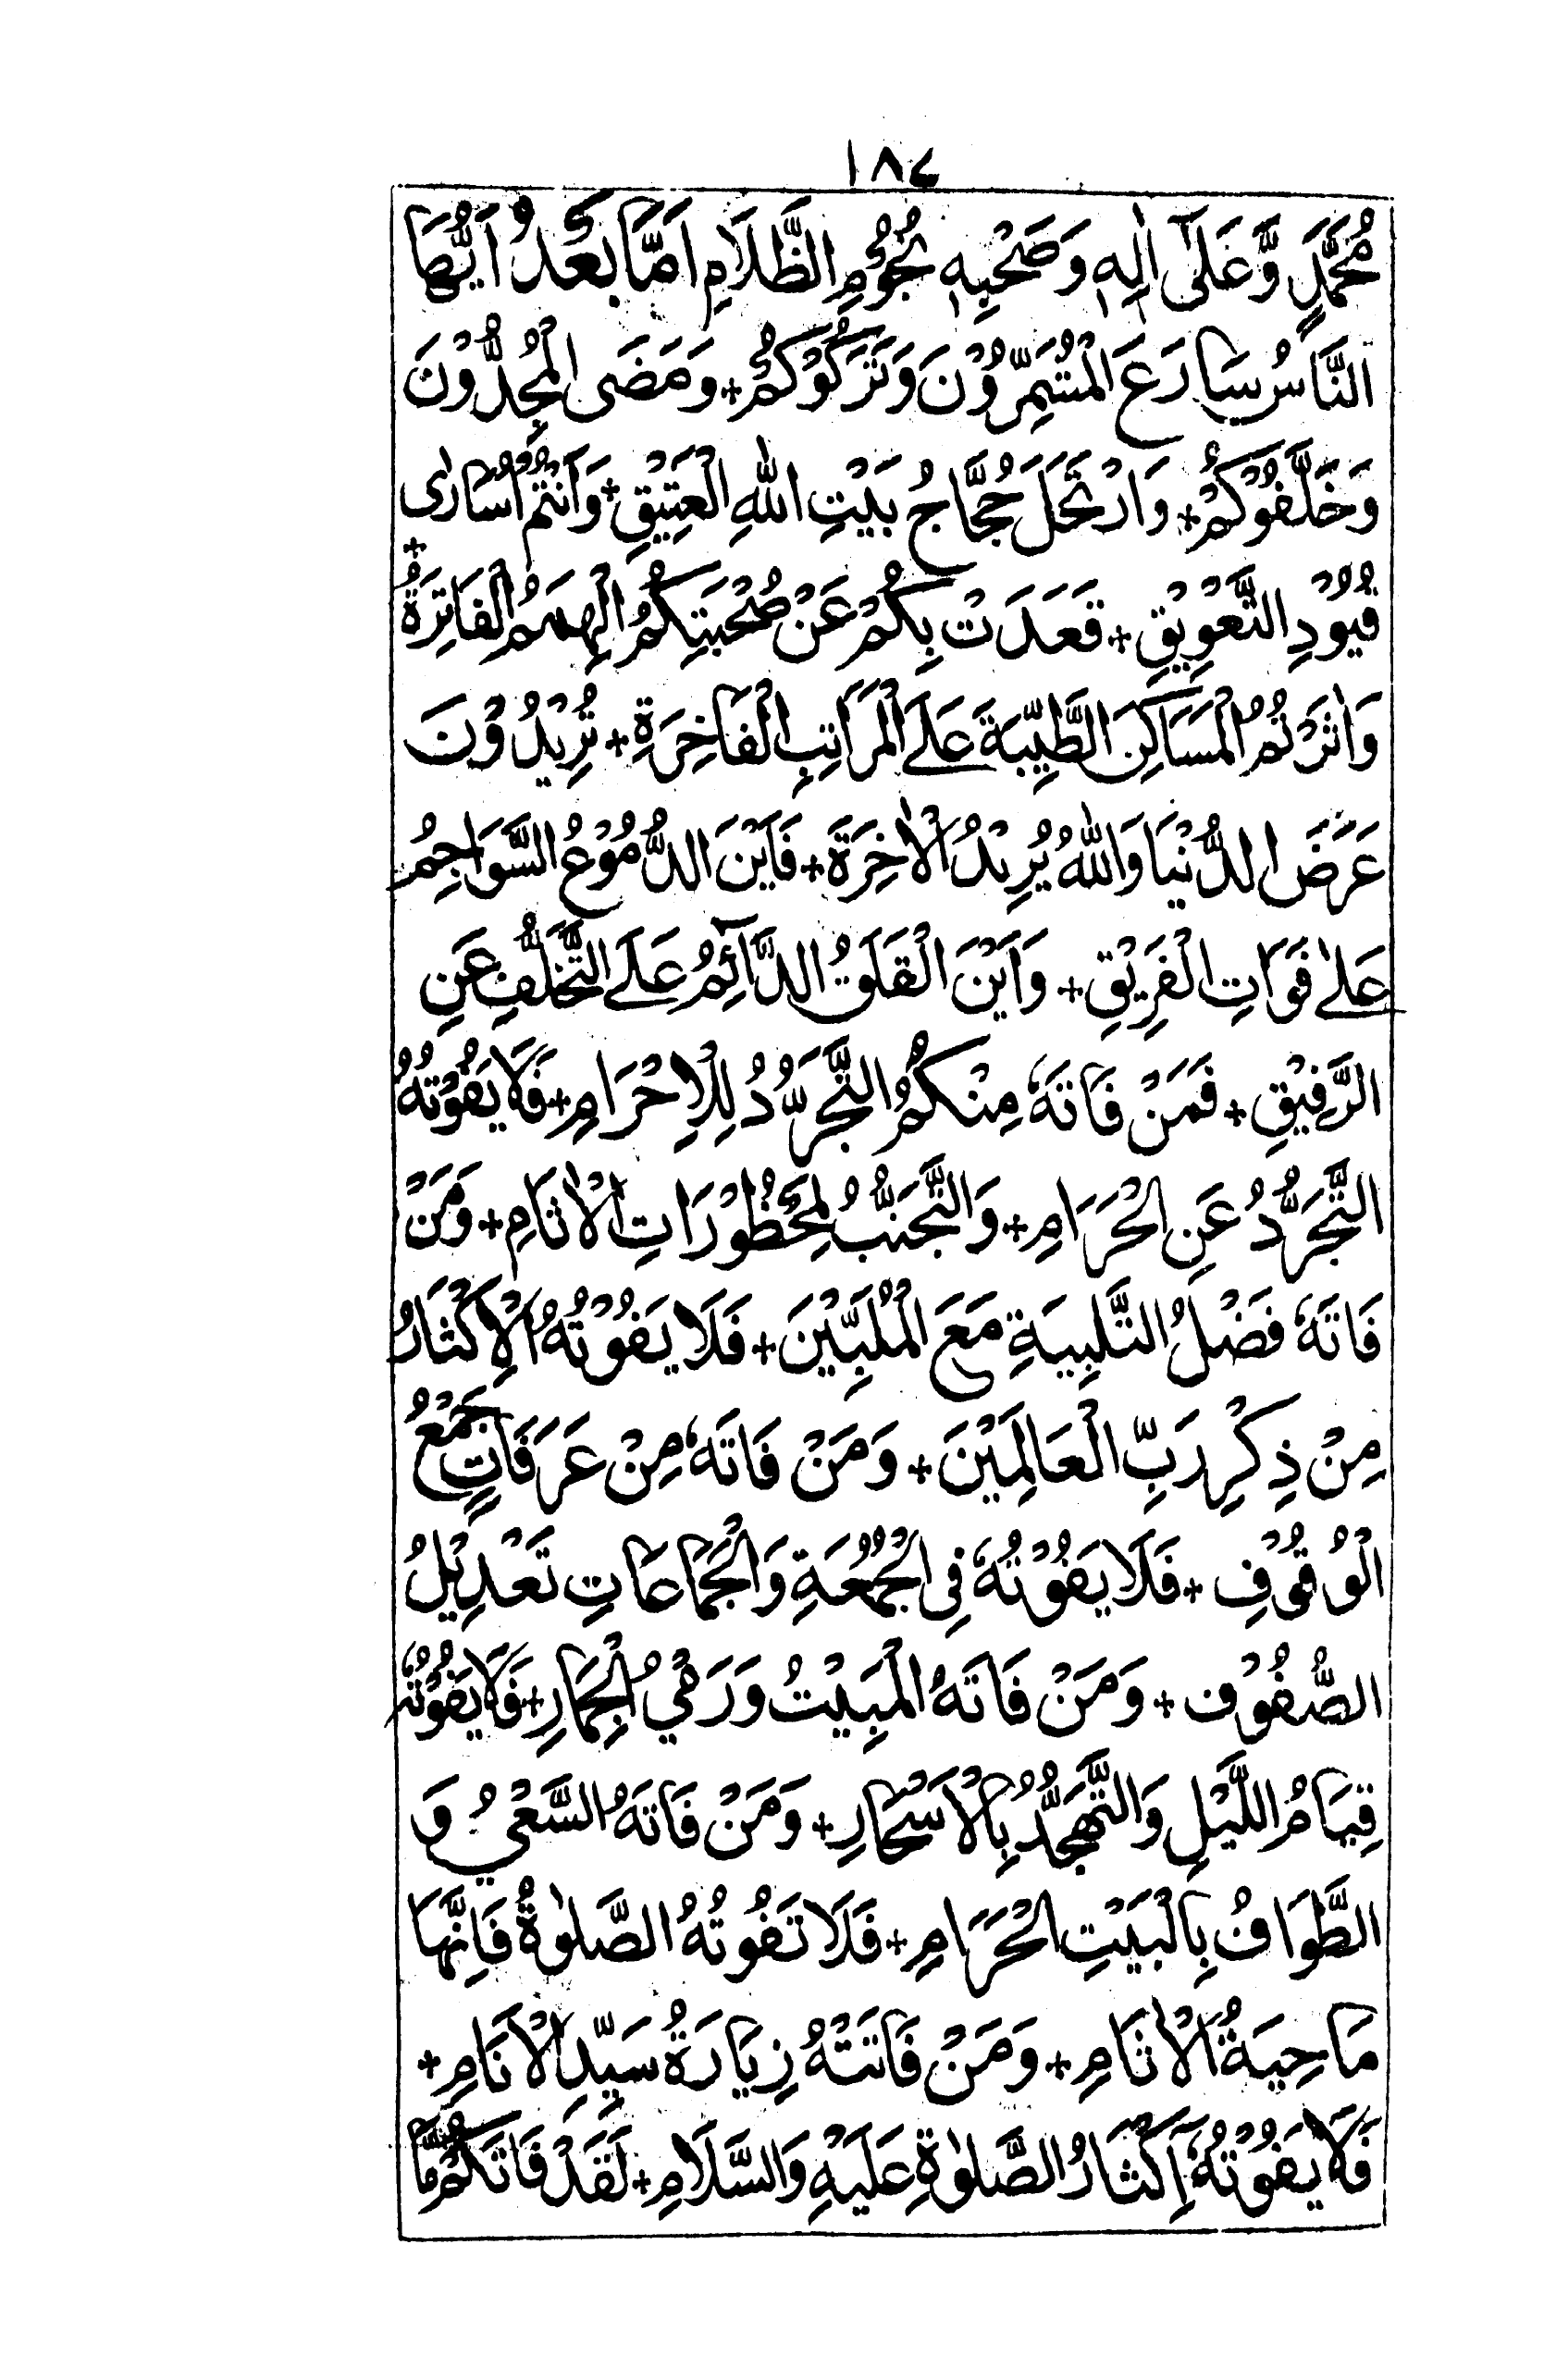 ١٨٤
مُحَمَّدٍ وَّعَلٰى اٰلِهٖ وَصَحْبِهٖ نُجُوْمِ الظَّلَامِ اَمَّا بَعْدُ اَيُّهَا
النَّاسُ سَارَعَ الْمُشَمِّرُوْنَ وَتَرَكُوْكُمْ + وَمَضَى الْمُجِدُّوْنَ
وَخَلَّفُوْكُمْ + وَارْتَحَلَ حُجَّاجُ بَيْتِ اللهِ الْعَتِيْقِ + وَاَنْتُمْ اُسَارٰى
قُيُوْدِ التَّعْوِيْقِ + قَعَدَتْ بِكُمْ عَنْ صُحْبَتِكُمُ الْهِمَمُ الْفَاتِرَةُ +
وَاٰثَرْتُمُ الْمَسَاكِنَ الطَّيِّبَةَ عَلَى الْمَرَاتِبِ الْفَاخِرَةِ + تُرِيْدُوْنَ
عَرَضَ الدُّنْيَا وَاللهُ يُرِيْدُ الْاٰخِرَةَ + فَاَيْنَ الدُّمُوْعُ السَّوَاجِمُ
عَلٰى فَوَاتِ الْفَرِيْقِ + وَاَيْنَ الْقَلَقُ الدَّآئِمُ عَلَى التَّخَلُّفِ عَنِ
الرَّفِيْقِ + فَمَنْ فَاتَهٗ مِنْكُمُ التَّجَرُّدُ لِلْاِحْرَامِ + فَلَا يَفُوْتُهُ
التَّجَرُّدُ عَنِ الْحَرَامِ + وَالتَّجَنُّبُ لِمَحْظُوْرَاتِ الْاٰثَامِ + وَمَنْ
فَاتَهٗ فَضْلُ التَّلْبِيَةِ مَعَ الْمُلَبِّيْنَ + فَلَا يَفُوْتُهُ الْاِكْثَارُ
مِنْ ذِكْرِ رَبِّ الْعَالَمِيْنَ + وَمَنْ فَاتَهٗ مِنْ عَرَفَاتٍ جَمْعُ
الْوُقُوْفِ + فَلَا يَفُوْتُهٗ فِى الْجُمُعَةِ وَالْجَمَاعَاتِ تَعْدِيْلُ
الصُّفُوْفِ + وَمَنْ فَاتَهُ الْمَبِيْتُ وَرَمْيُ الْجِمَارِ + فَلَا يَفُوْتُهٗ
قِيَامُ اللَّيْلِ وَالتَّهَجُّدُ بِالْاَسْحَارِ + وَمَنْ فَاتَهُ السَّعْيُ وَ
الطَّوَافُ بِالْبَيْتِ الْحَرَامِ + فَلَا تَفُوتُهُ الصَّلٰوةُ فَاِنَّهَا
مَاحِيَةُ الْاٰثَامِ + وَمَنْ فَاتَتْهُ زِيَارَةُ سَيِّدِ الْاَنَامِ +
فَلَا يَفُوْتُهٗ اِكْثَارُ الصَّلٰوةِ عَلَيْهِ وَالسَّلَامِ + لَقَدْ فَاتَكُمْ مَّا